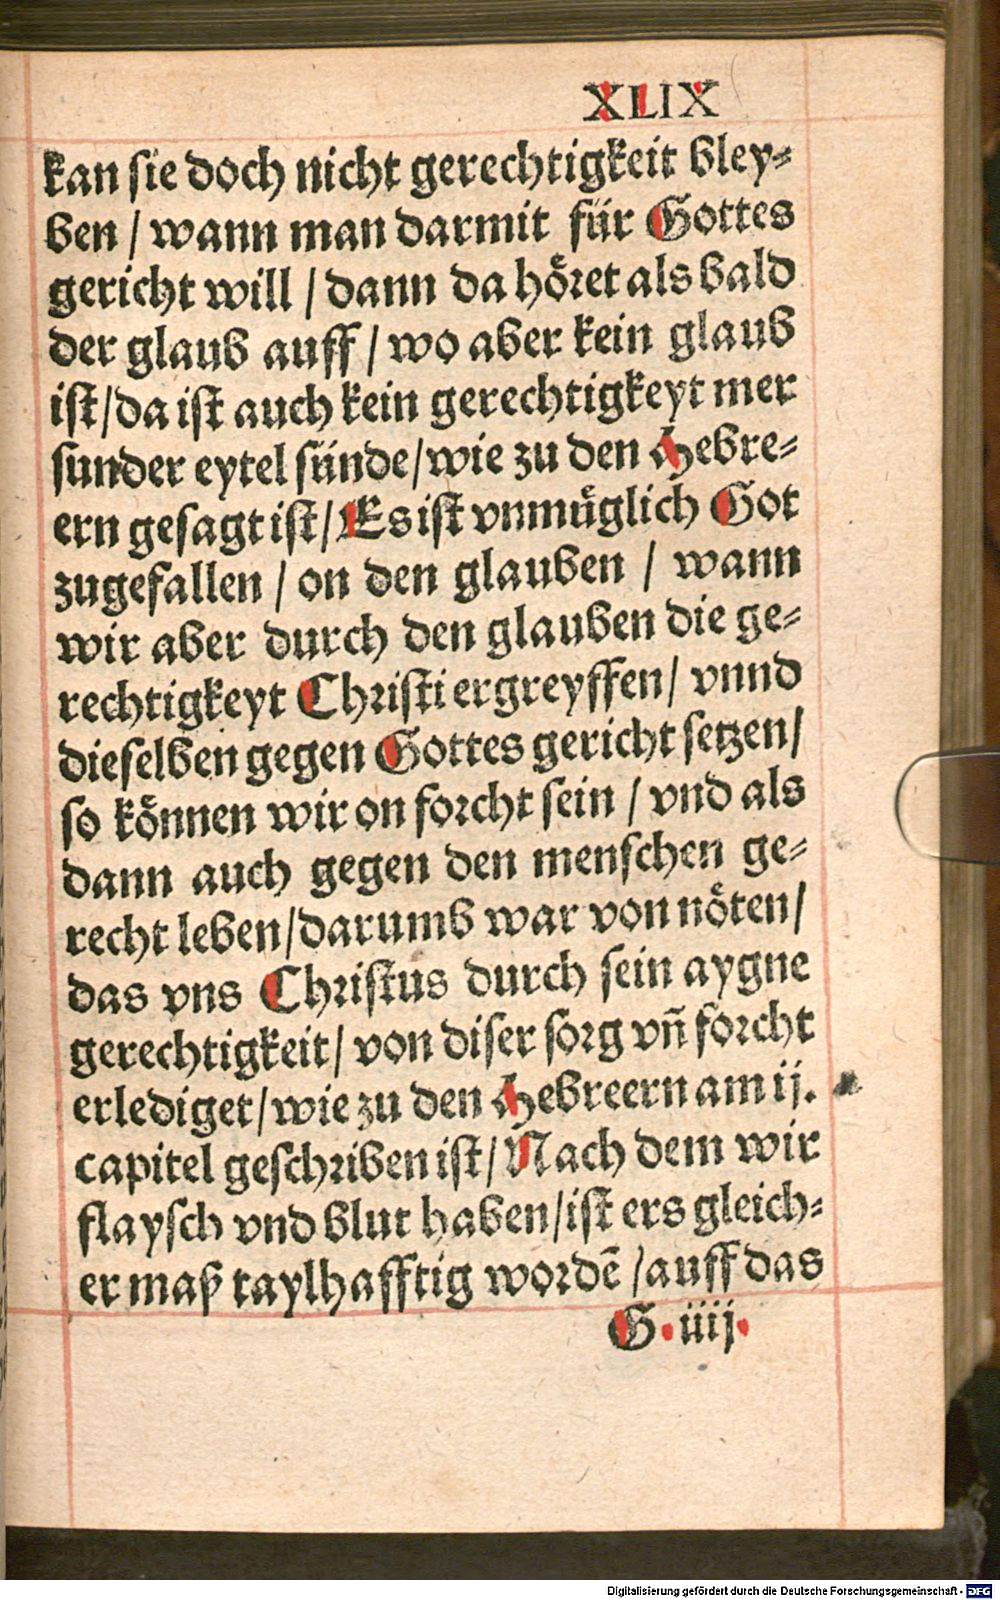 XLIX
kan sie doch nicht gerechtigkeit bley⸗
ben / wann man darmit für Gottes
gericht will / dann da höret als bald
der glaub auff / wo aber kein glaub
ist/da ist auch kein gerechtigkeyt mer
sunder eytel sünde/wie zu den Hebre⸗
ern gesagt ist/Es ist vnmüglich Got
zugefallen / on den glauben / wann
wir aber durch den glauben die ge⸗
rechtigkeyt Christi ergreyffen/ vnnd
dieselben gegen Gottes gericht setzen/
so können wir on forcht sein / vnd als
dann auch gegen den menschen ge⸗
recht leben/darumb war von nöten/
das vns Christus durch sein aygne
gerechtigkeit/ von diser sorg vñ forcht
erlediget/wie zu den Hebreern am ij.
capitel geschriben ist/Nach dem wir
flaysch vnd blut haben/ist ers gleich⸗
er maß taylhafftig wordē /auff das
G.iiij.
Digitalisierung gefördert durch die Deutsche Forschungsgemeinschaft - DFG